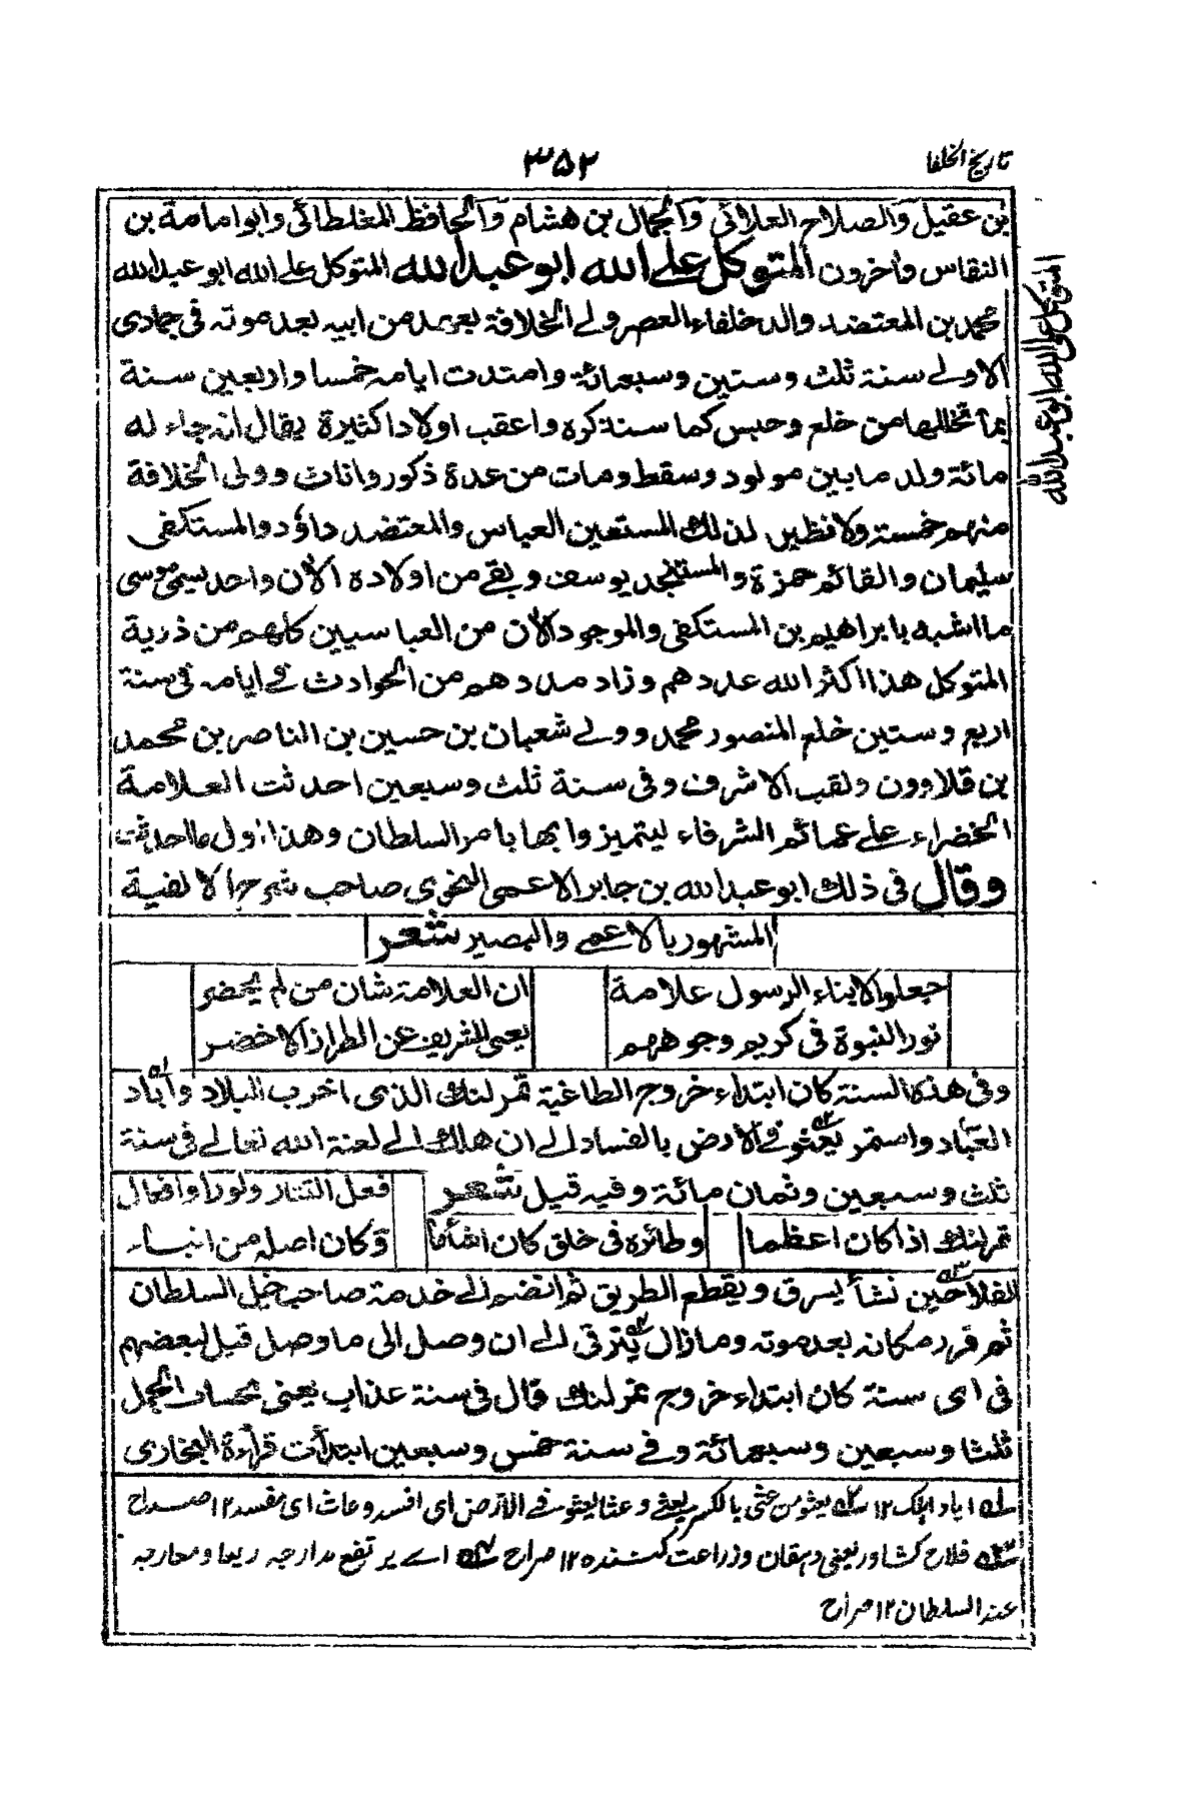 تاريخ الخلفا
۳۵۲
بن عقيل والصلاح العلائى والجمال بن هشام والحافظ المغلطائى وابوامامة بن
النقاس وآخرون المتوكل على الله ابو عبد الله المتوكل على الله ابو عبد الله
محمد بن المعتضد والد خلفاء العصر ولى الخلافة بعهد من ابيه بعد موته فى جمادى
الاولى سنة ثلث وستين وسبعمائة وامتدت ايامه خمسا واربعين سنة
بما تخللها من خلع وحبس كما سنذكره واعقب اولادا كثيرة يقال انه جاء له
مائة ولد ما بين مولود وسقط ومات من عدة ذكور واناث وولى الخلافة
منهم خمسة ولا نظير لذلك المستعين العباس والمعتضد داؤد والمستكفى
سليمان والقائم حمزة والمستنجد يوسف وبقى من اولاده الآن واحد يسمى موسى
ما اشبه بابراهيم بن المستكفى والموجود الآن من العباسيين كلهم من ذرية
المتوكل هذا اكثر الله عددهم وزاد مددهم من الحوادث فى ايامه فى سنة
اربع وستين خلع المنصور محمد وولى شعبان بن حسين بن الناصر بن محمد
بن قلاوون ولقب الاشرف وفى سنة ثلث وسبعين احدثت العلامة
الخضراء على عمائم الشرفاء ليتميزوا بها بامر السلطان وهذا اول ما احدثت
وقال فى ذلك ابو عبد الله بن جابر الاعمى النحوى صاحب شرح الالفية
المشهور بالاعمى والبصير شعر
جعلوا لابناء الرسول علامة ان العلامة شان من لم يحضر
نور النبوة فى كريم وجوههم يغنى الشريف عن الطراز الاخضر
وفى هذه السنة كان ابتداء خروج الطاغية تمرلنك الذى اخرب البلاد وآباد
العباد واستمر يعثو فى الارض بالفساد الى ان هلك الى لعنة الله تعالى فى سنة
ثلث وسبعين وثمان مائة وفيه قيل شعر فعل التتار ولو راوا افعال
تمرلنك اذا كان اعظما وطائره فى خلق كان اشأما وكان اصله من ابناء
الفلاحين نشأ يسرق ويقطع الطريق ثم انضم الى خدمة صاحب خيل السلطان
ثم قرر مكانه بعد موته وما زال يترقى الى ان وصل الى ما وصل قيل لبعضهم
فى اى سنة كان ابتداء خروج تمرلنك قال فى سنة عذاب يعنى بحساب الجمل
ثلثا وسبعين وسبعمائة وفى سنة خمس وسبعين ابتدأت قرأة البخارى
له اباد اهلك ۱۲ له يعثو من عثى بالكسر يعثى وعثا يعثو فى الارض اى افسد وعاث اى مفسد ۱۲ صراح
له فلاح كشاورز يعنى دهقان وزراعت كننده ۱۲ صراح له اے يرتفع مدارجه ريعا ومعارجه
عند السلطان ۱۲ صراح
المتوكل على الله ابو عبد الله